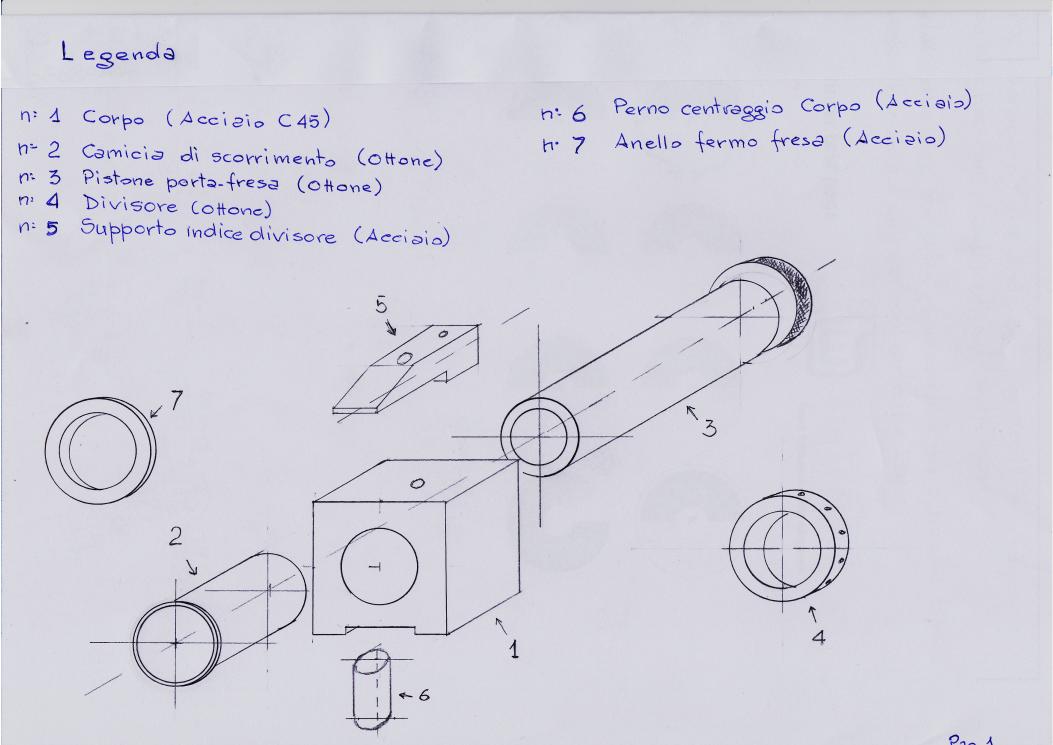 Legenda
n: 1 Corpo (Acciaio C45)
n: 2 Camicia di scorrimento (Ottone)
n: 3 Pistone porta-fresa (Ottone)
n: 4 Divisore (Ottone)
n: 5 Supporto indice divisore (Acciaio)
n: 6 Perno centraggio Corpo (Acciaio)
n: 7 Anello fermo fresa (Acciaio)
5
7
3
2
1
4
6